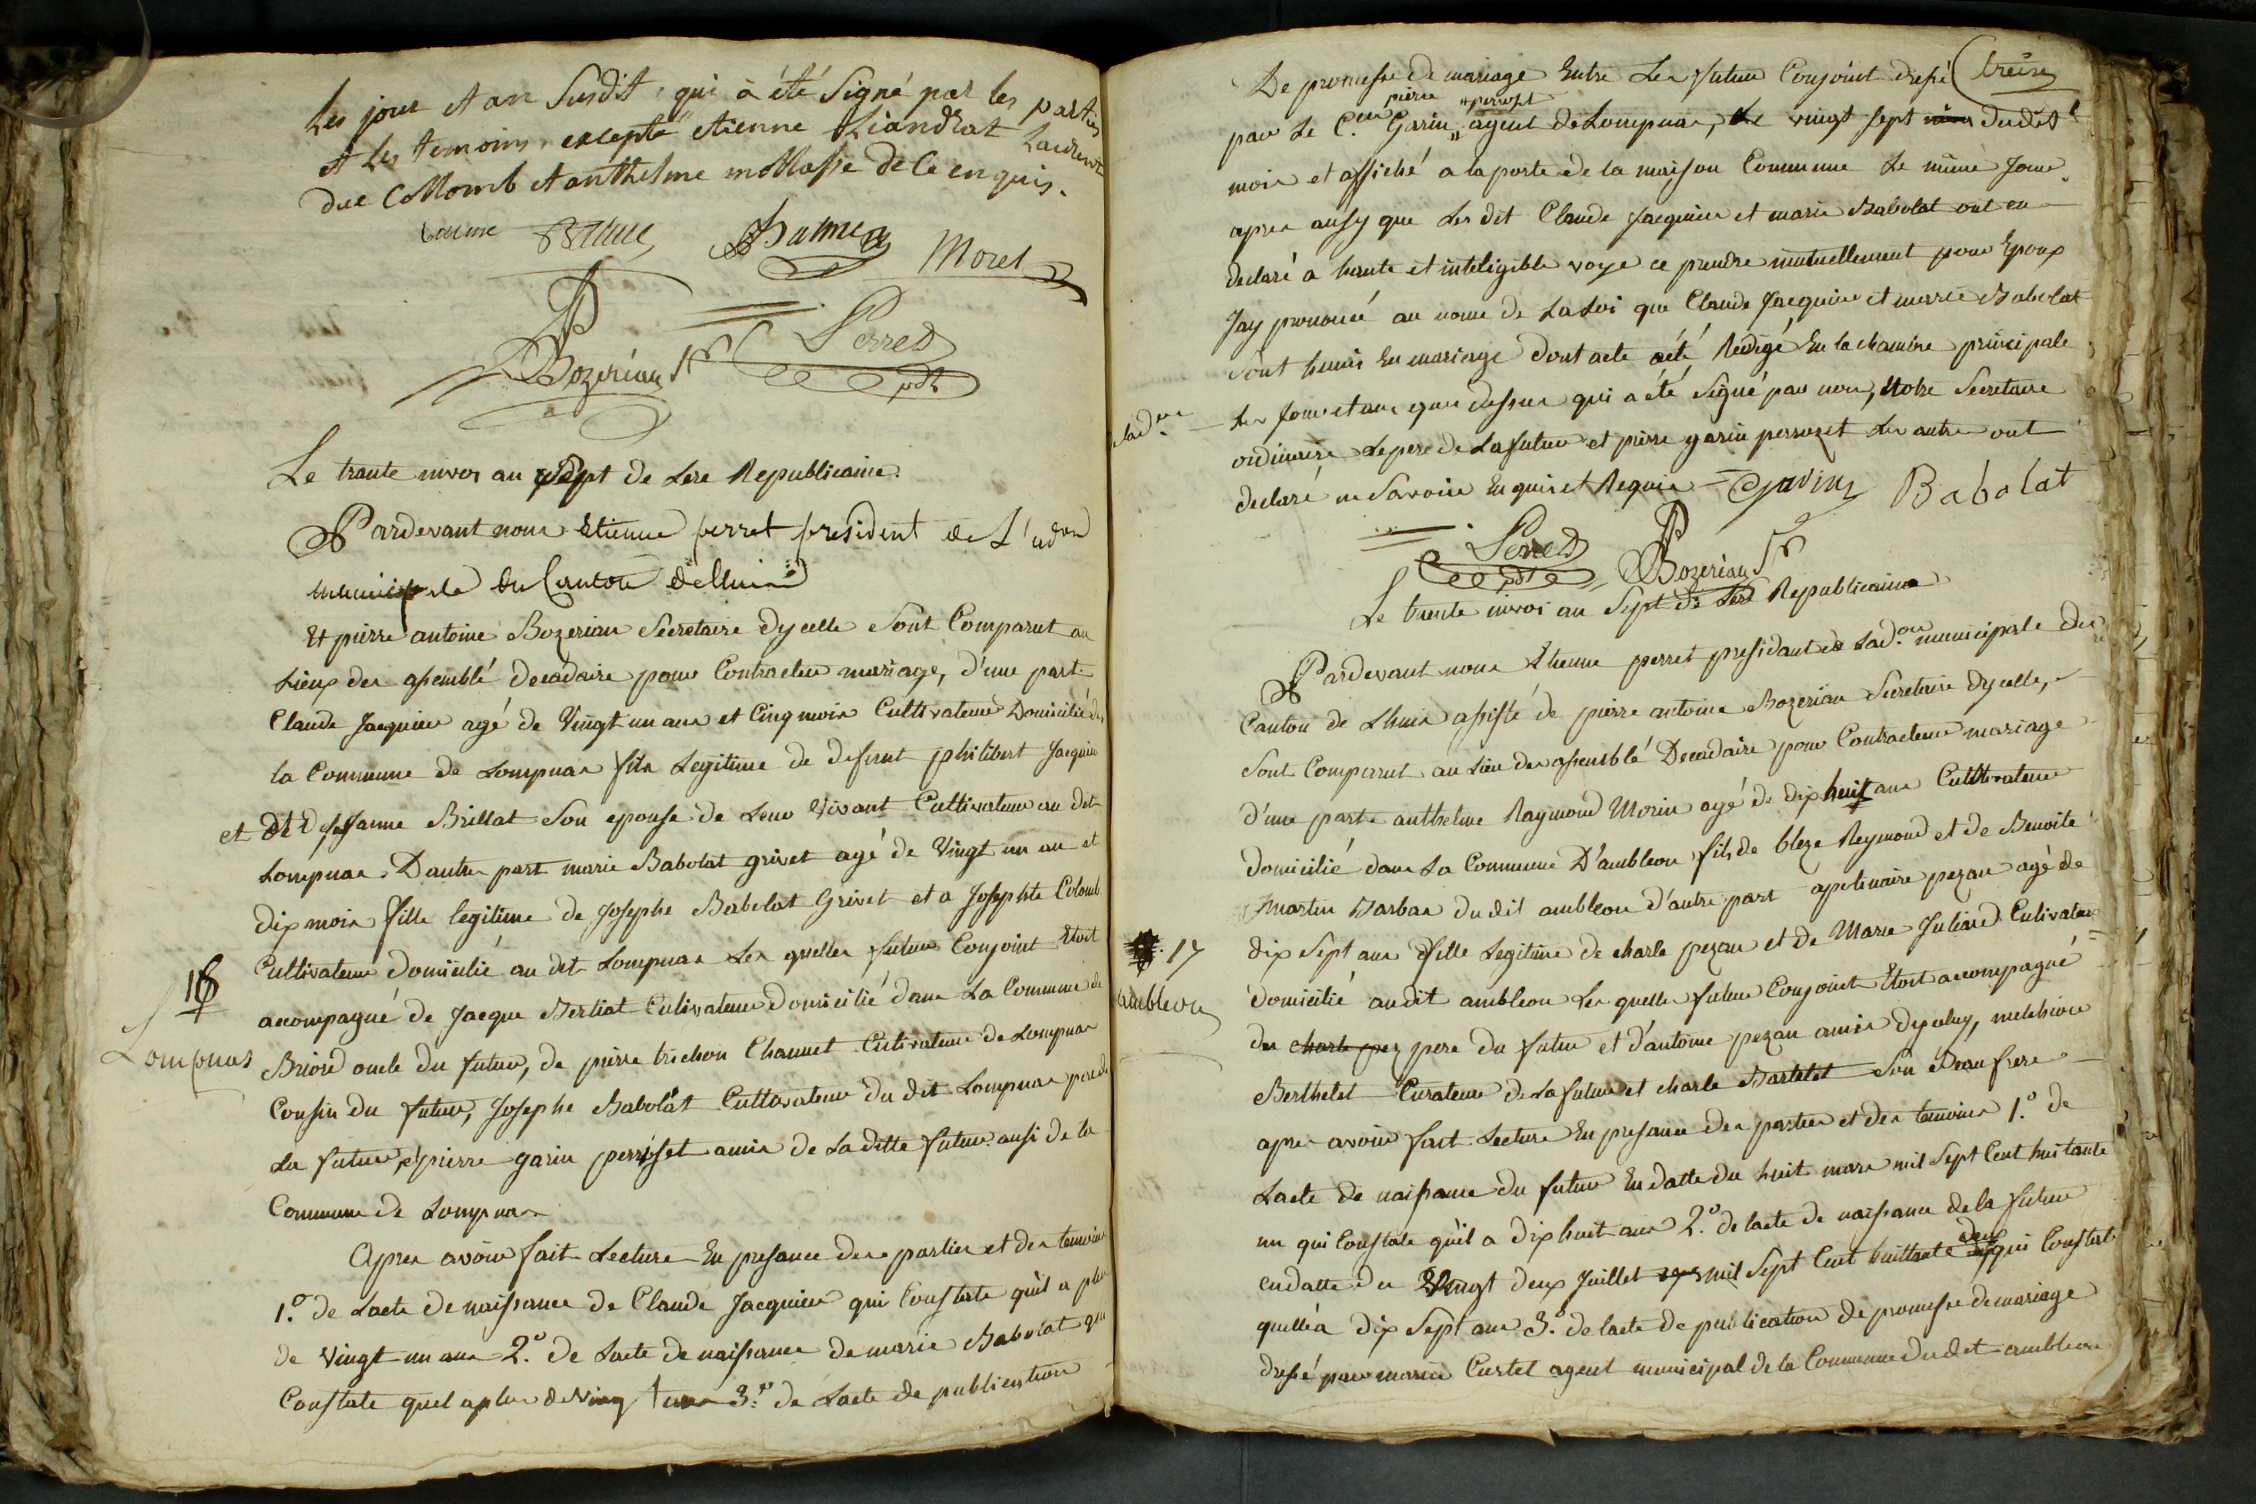 Les jour et an Susdit, qui à été Signé par les parties
et les temoins, excepté etienne Liandrat Laurent
duc Collomb et anthelme mollasse de ce enquis.
Baume Balme Moret
Bozerian Sre Perret pdt
Le trante nivos an Sept de Lere Republicaine.
Pardevant nous Etienne perret president de L'adon
municipale du Canton de Lhuis
Et pierre antoine Bozerian Secretaire dycelle Sont Comparut au
Lieux des assemblé decadaire pour Contracter mariage, d'une part
Claude Jacquier agé de Vingt un ans et Cinq mois Cultivateur Domicilié ds
la Commune de Lompnas fils Legitime de defunt philibert Jacquier
et de Jeanne Brillat Son epouse de Leur Vivant Cultivateur au dit
Lompnas, Dautre part marie Babolat grivet agé de Vingt un an et
dix mois fille legitime de Josephe Babolat Grivet et a Josephte Colomb
Cultivateur domicilié au dit Lompnas Les quelles futur Conjoint Etoit
accompagné de Jacque Berliat Cultivateur domicilié dans La Commune de
16
Lompnas
Briord oncle du futur, de pierre trichon Channet Cultivateur de Lompnas
Cousin du futur, Josephe Babolat Cultivateur du dit Lompnas pere de
La future, et pierre garin perroset amis de La ditte future ausi de la
Commune de Lompnas
Apres avoir fait Lecture En presance des parties et des temoins
1.º de Lacte de naissance de Claude Jacquier qui Constate qu'il a plus
de Vingt un ans 2.º de Lacte de naissance de marie Babolat qui
Constate quel a plus de Vingt un ans 3.º de Lacte de publication
De promesse de mariage Entre Les futur Conjoint dressé treize
par Le C.en pierre Garin perrozet agent de Lompnas, Le vingt sept dudit
mois et affiché a la porte de la maison Commune Le même Jour,
apres ausy que Les dit Claude Jacquier et marie Babolat ont eu
declaré a haute et inteligible voye ce prendre mutuellement pour Epoux
Jay prononcé au nom de La Loi que Claude Jacquier et marie Babolat
Sont hunis En mariage dont acte a été Redigé En la chambre principale
Lad.on
Les Jour et an que dessus qui a été Signé par nous, Notre Secretaire
ordinaire Le pere de La future et pierre garin perrozet Les autres ont
declaré ne Savoire Enquis et Requis Garin Babolat
Perret pdt Bozerian Sre
Le trente nivos an Sept de Lere Republicaine
Pardevant nous Etienne perret presidant de Lad.on municipale du
Canton de Lhuis assisté de pierre antoine Bozerian Secretaire dycelle,
Sont Comparut au Lieu des assemblé Decadaire pour Contracter mariage
d'une part anthelme Raymond Morin agé de dix huit ans Cultivateur
domicilié dans La Commune D'ambleon fils de bleze Reymond et de Benoite
Martin Barbas du dit ambleon d'autre part apolinaire pezan agé de
dix Sept ans fille Legitime de charle pezan et de Marie Juliand Cultivateur
17
ambleon
domicilié audit ambleon Les quelles futur Conjoint Etoit accompagné
du charle pez pere du futur et d'antoine pezan amis dyceluy, melchior
Berthelet Curateur de La future et charle Bartelet Son Beau frere
apres avoir fait Lecture En presance des parties et des temoins 1.º de
Lacte de naissance du futur En datte du huit mars mil Sept Cent huitante
un qui Constate qu'il a dix huit ans 2.º de lacte de naissance de la future
en datte du Vingt deux Juillet mil Sept Cent huittante deux qui Constate
quelle a dix Sept ans 3.º de lacte de publication de promesse de mariage
dressé par marin Curtet agent municipal de la Commune du dit ambleon